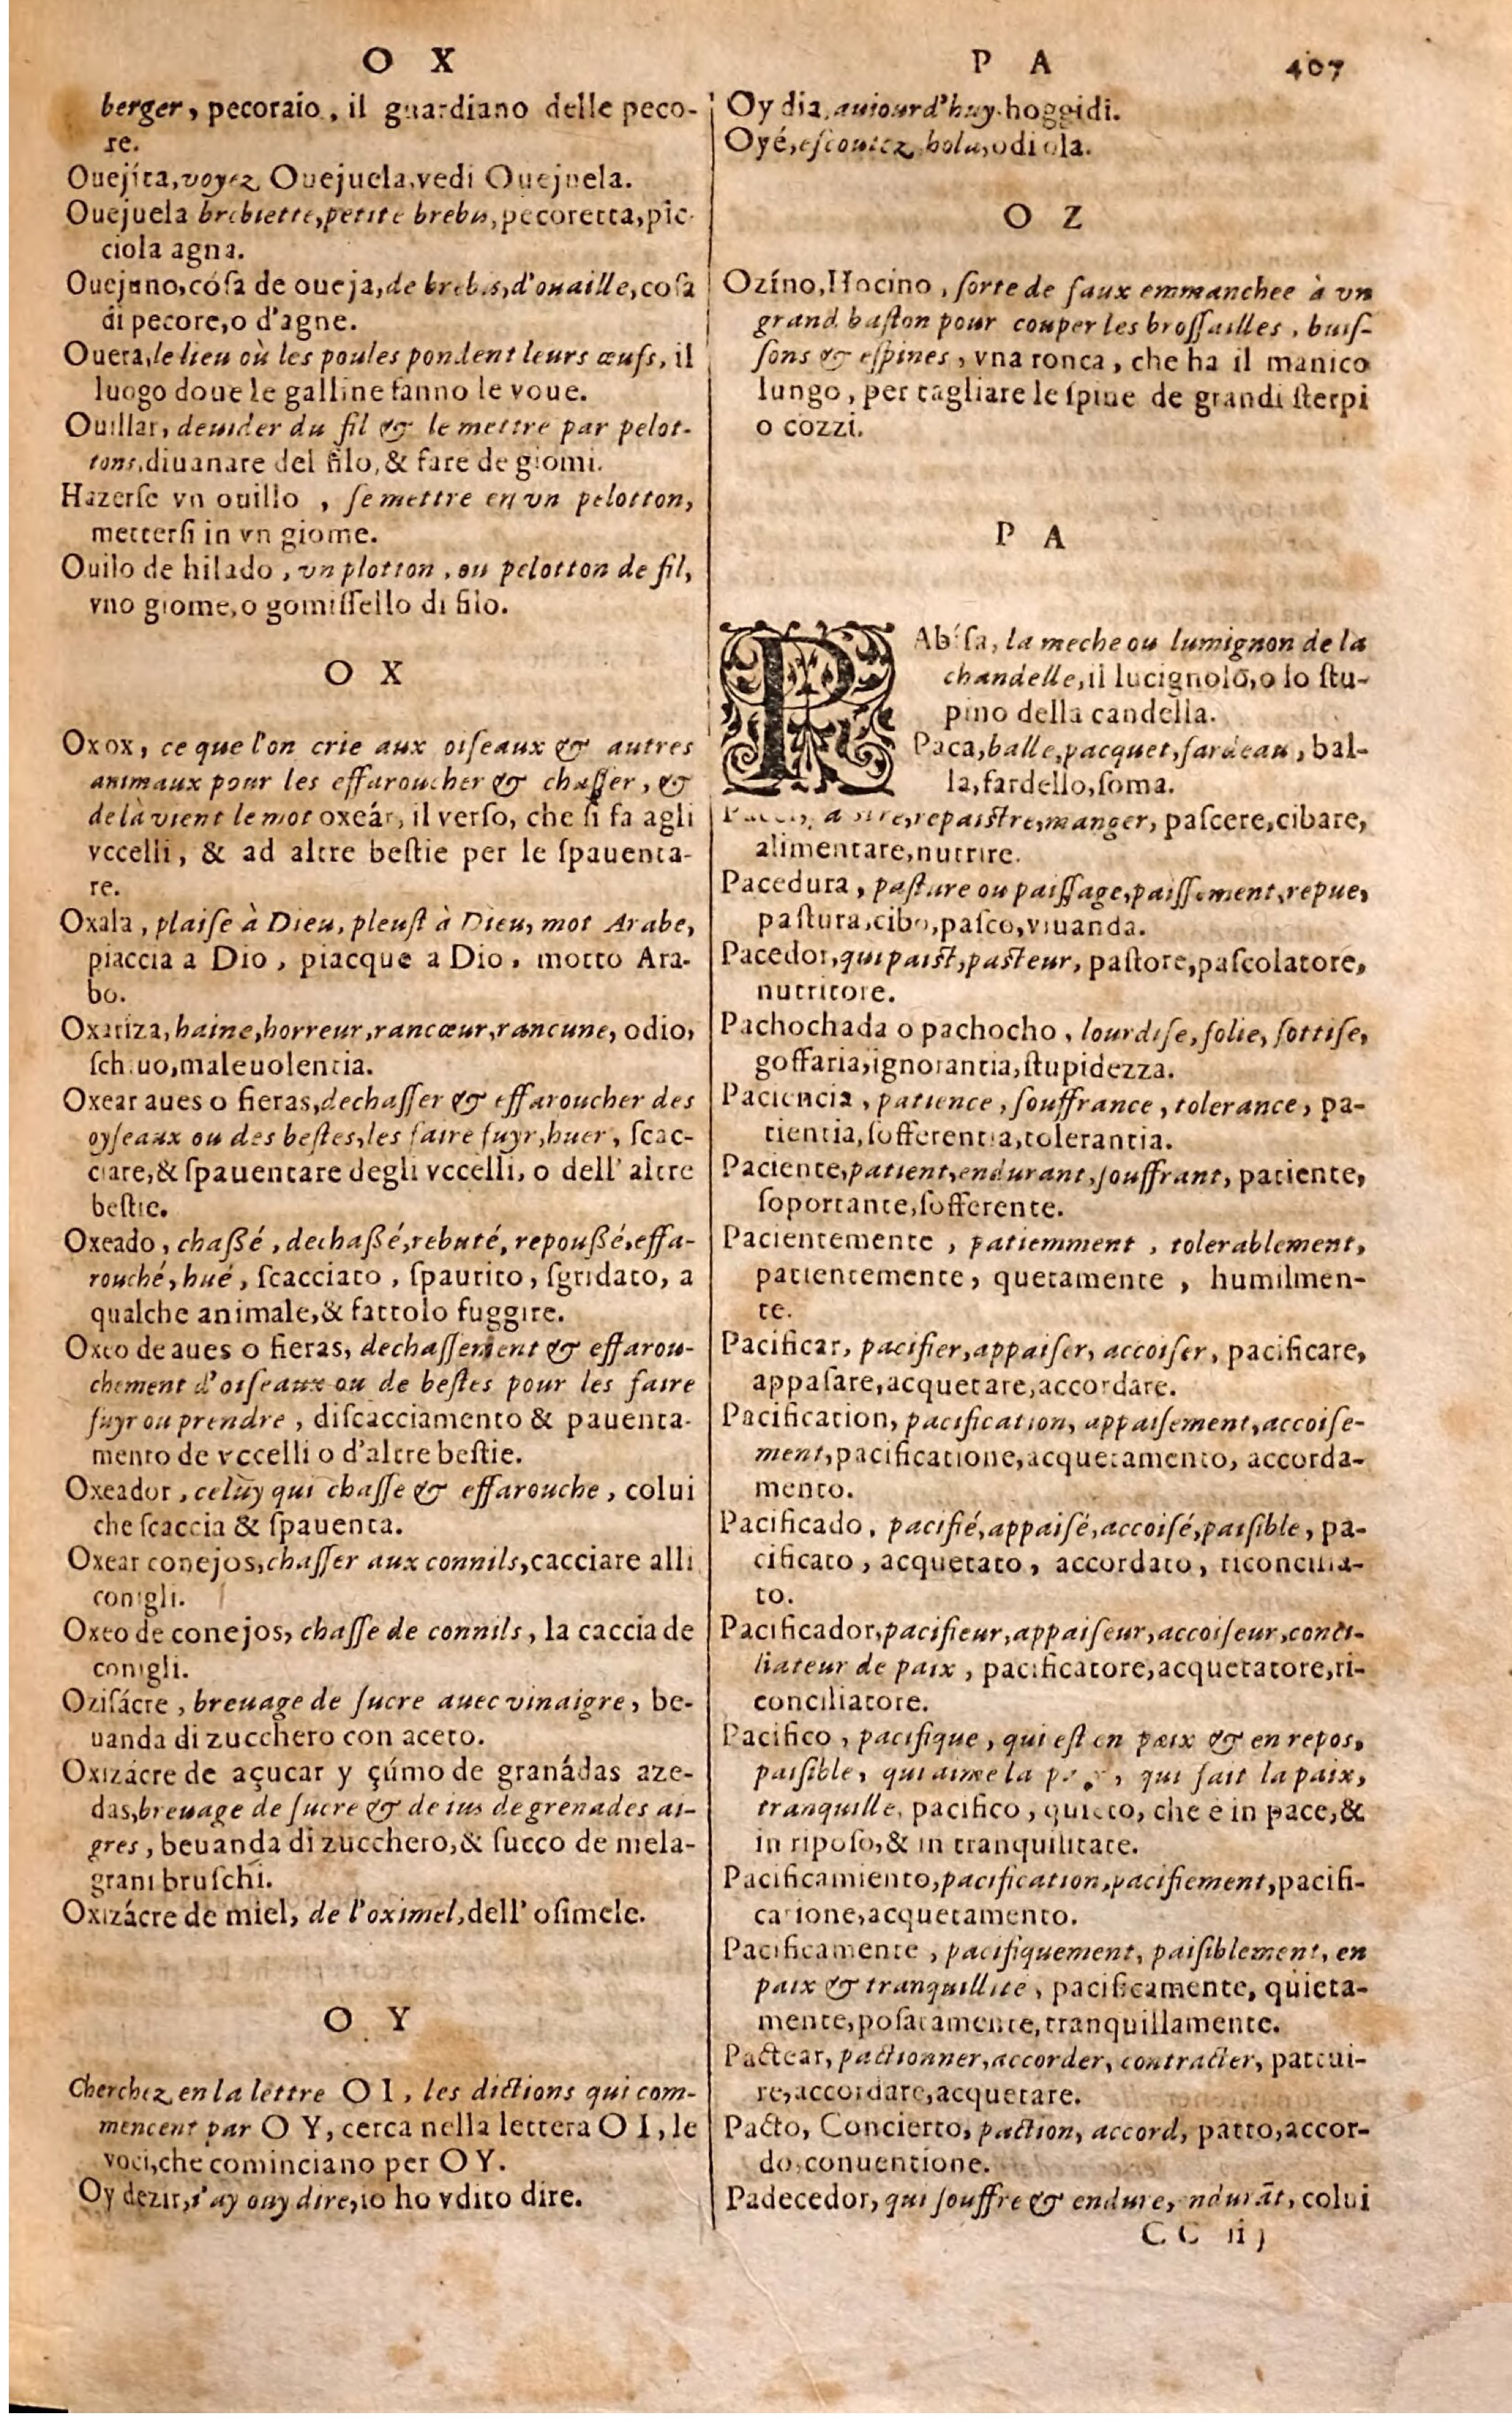 O X
berger, pecoraio, il guardiano delle peco-
re.
Ouejíta, voyez Ouejuela, vedi Ouejuela.
Ouejuela brebiette, petite brebis, pecoretta, pic-
ciola agna.
Ouejuno, cósa de oueja, de brebis, d'ouaille, cosa
di pecore, o d'agne.
Ouera, le lieu où les poules pondent leurs œufs, il
luogo doue le galline fanno le voue.
Ouillar, deuider du fil & le mettre par pelot-
tons, diuanare del filo, & fare de giomi.
Hazerſe vn ouillo , ſe mettre en vn pelotton,
metterſi in vn giome.
Ouilo de hilado , vn plotton , ou pelotton de fil,
vno giome, o gomiſſello di filo.
O X
Oxox, ce que l'on crie aux oiſeaux & autres
animaux pour les effaroucher & chaſſer, &
de là vient le mot oxeár, il verſo, che ſi fa agli
vccelli, & ad altre beſtie per le ſpauenta-
re.
Oxala , plaiſe à Dieu, pleuſt à Dieu, mot Arabe,
piaccia a Dio , piacque a Dio , motto Ara-
bo.
Oxariza, haine, horreur, rancœur, rancune, odio,
ſchiuo, maleuolentia.
Oxear aues o fieras, dechaſſer & effaroucher des
oyſeaux ou des beſtes, les faire fuyr, huer, ſcac-
ciare, & ſpauentare degli vccelli, o dell' altre
beſtie.
Oxeado, chaßé, dechaßé, rebuté, repoußé, effa-
rouché, hué, ſcacciato, ſpaurito, ſgridato, a
qualche animale, & fattolo fuggire.
Oxeo de aues o fieras, dechaſſement & effarou-
chement d'oiſeaux ou de beſtes pour les faire
fuyr ou prendre , diſcacciamento & pauenta-
mento de vccelli o d'altre beſtie.
Oxeador, celuy qui chaſſe & effarouche, colui
che ſcaccia & ſpauenta.
Oxear conejos, chaſſer aux connils, cacciare alli
conigli.
Oxeo de conejos, chaſſe de connils, la caccia de
conigli.
Oziſácre, breuage de ſucre auec vinaigre, be-
uanda di zucchero con aceto.
Oxizácre de açucar y çúmo de granádas aze-
das, breuage de ſucre & de ius de grenades ai-
gres, beuanda di zucchero, & ſucco de mela-
grani bruſchi.
Oxizácre de miel, de l'oximel, dell' oſimele.
O Y
Cherchez en la lettre O I, les dictions qui com-
mencent par O Y, cerca nella lettera O I, le
voci, che cominciano per O Y.
Oy dezir, i'ay ouy dire, io ho vdito dire.
P A 407
Oy dia, auiourd'huy. hoggidi.
Oyé, eſcoutez, hola, odi ola.
O Z
Ozíno, Hocino , ſorte de faux emmanchee à vn
grand baſton pour couper les broſſailles, buiſ-
ſons & eſpines, vna ronca, che ha il manico
lungo, per tagliare le ſpine de grandi ſterpi
o cozzi.
P A
PAbíſa, la meche ou lumignon de la
chandelle, il lucignolo, o lo ſtu-
pino della candella.
Paca, balle, pacquet, fardeau, bal-
la, fardello, ſoma.
repaiſtre, manger, paſcere, cibare,
alimentare, nutrire.
Pacedura, paſture ou paiſſage, paiſſement, repue,
paſtura, cibo, paſco, viuanda.
Pacedor, qui paiſt, paſteur, paſtore, paſcolatore,
nutritore.
Pachochada o pachocho, lourdiſe, folie, ſottiſe,
goffaria, ignorantia, ſtupidezza.
Paciencia, patience, ſouffrance, tolerance, pa-
tientia, ſofferentia, tolerantia.
Paciente, patient, endurant, ſouffrant, patiente,
ſoportante, ſofferente.
Pacientemente , patiemment , tolerablement,
patientemente, quetamente , humilmen-
te.
Pacificar, pacifier, appaiſer, accoiſer, pacificare,
appaſare, acquetare, accordare.
Pacification, pacification, appaiſement, accoiſe-
ment, pacificatione, acquetamento, accorda-
mento.
Pacificado, pacifié, appaiſé, accoiſé, paiſible, pa-
cificato, acquetato, accordato, riconcilia-
to.
Pacificador, pacifieur, appaiſeur, accoiſeur, conci-
liateur de paix, pacificatore, acquetatore, ri-
conciliatore.
Pacifico, pacifique, qui eſt en paix & en repos,
paiſible, qui aime la qui fait la paix,
tranquille, pacifico, quieto, che è in pace, &
in ripoſo, & in tranquilitate.
Pacificamiento, pacification, pacifiement, pacifi-
catione, acquetamento.
Pacificamente , pacifiquement, paiſiblement, en
paix & tranquillité, pacificamente, quieta-
mente, poſatamente, tranquillamente.
Pactear, pactionner, accorder, contracter, pattui-
re, accordare, acquetare.
Pacto, Concierto, paction, accord, patto, accor-
do, conuentione.
Padecedor, qui ſouffre & endure, ndurāt, colui
CC iij